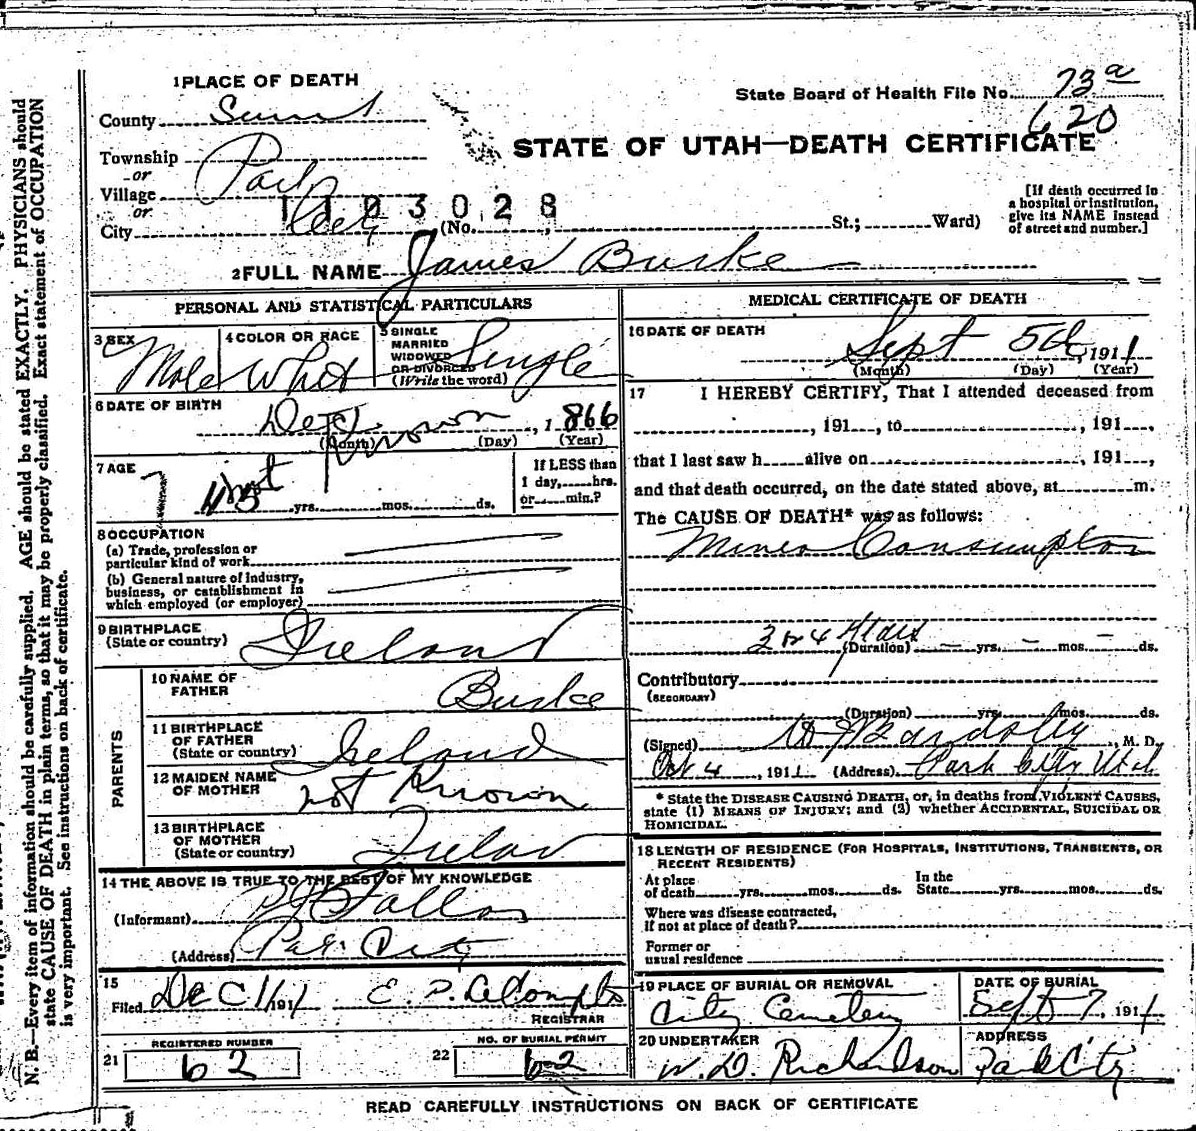 N. B.—Every item of information should be carefully supplied. AGE should be stated EXACTLY. PHYSICIANS should
state CAUSE OF DEATH in plain terms, so that it may be properly classified. Exact statement of OCCUPATION
is very important. See instructions on back of certificate.
1 PLACE OF DEATH
State Board of Health File No. 73a
620
County Summit
STATE OF UTAH—DEATH CERTIFICATE
Township
or
Village Park
or
1103028
City City (No. , St.; Ward)
[If death occurred in
a hospital or institution,
give its NAME instead
of street and number.]
2 FULL NAME James Burke
PERSONAL AND STATISTICAL PARTICULARS
3 SEX Male
4 COLOR OR RACE White
5 SINGLE
MARRIED
WIDOWED
OR DIVORCED
(Write the word) Single
6 DATE OF BIRTH Not Known , 1866
(Month) (Day) (Year)
7 AGE 45 yrs. mos. ds.
If LESS than
1 day, hrs.
or min.?
8 OCCUPATION
(a) Trade, profession or
particular kind of work
(b) General nature of industry,
business, or establishment in
which employed (or employer)
9 BIRTHPLACE
(State or country) Ireland
PARENTS
10 NAME OF
FATHER Burke
11 BIRTHPLACE
OF FATHER
(State or country) Ireland
12 MAIDEN NAME
OF MOTHER not Known
13 BIRTHPLACE
OF MOTHER
(State or country) Ireland
14 THE ABOVE IS TRUE TO THE BEST OF MY KNOWLEDGE
(Informant) Fallon
(Address) Park City
15
Filed Dec 1, 1911 E. P.
REGISTRAR
21 REGISTERED NUMBER
62
22 NO. OF BURIAL PERMIT
62
MEDICAL CERTIFICATE OF DEATH
16 DATE OF DEATH
Sept 5th, 1911
(Month) (Day) (Year)
17 I HEREBY CERTIFY, That I attended deceased from
, 191 , to , 191 ,
that I last saw h alive on , 191 ,
and that death occurred, on the date stated above, at m.
The CAUSE OF DEATH* was as follows:
Miners Consumption
3 or 4 Years
(Duration) — yrs. — mos. — ds.
Contributory
(SECONDARY)
(Duration) yrs. mos. ds.
(Signed) Bardsley, M. D.
Oct 4, 1911 (Address) Park City Utah
* State the DISEASE CAUSING DEATH, or, in deaths from VIOLENT CAUSES,
state (1) MEANS OF INJURY; and (2) whether ACCIDENTAL, SUICIDAL OR
HOMICIDAL.
18 LENGTH OF RESIDENCE (FOR HOSPITALS, INSTITUTIONS, TRANSIENTS, OR
RECENT RESIDENTS)
At place
of death yrs. mos. ds.
In the
State yrs. mos. ds.
Where was disease contracted,
if not at place of death?
Former or
usual residence
19 PLACE OF BURIAL OR REMOVAL
City Cemetery
DATE OF BURIAL
Sept 7, 1911
20 UNDERTAKER
W. D. Richardson
ADDRESS
Park City
READ CAREFULLY INSTRUCTIONS ON BACK OF CERTIFICATE